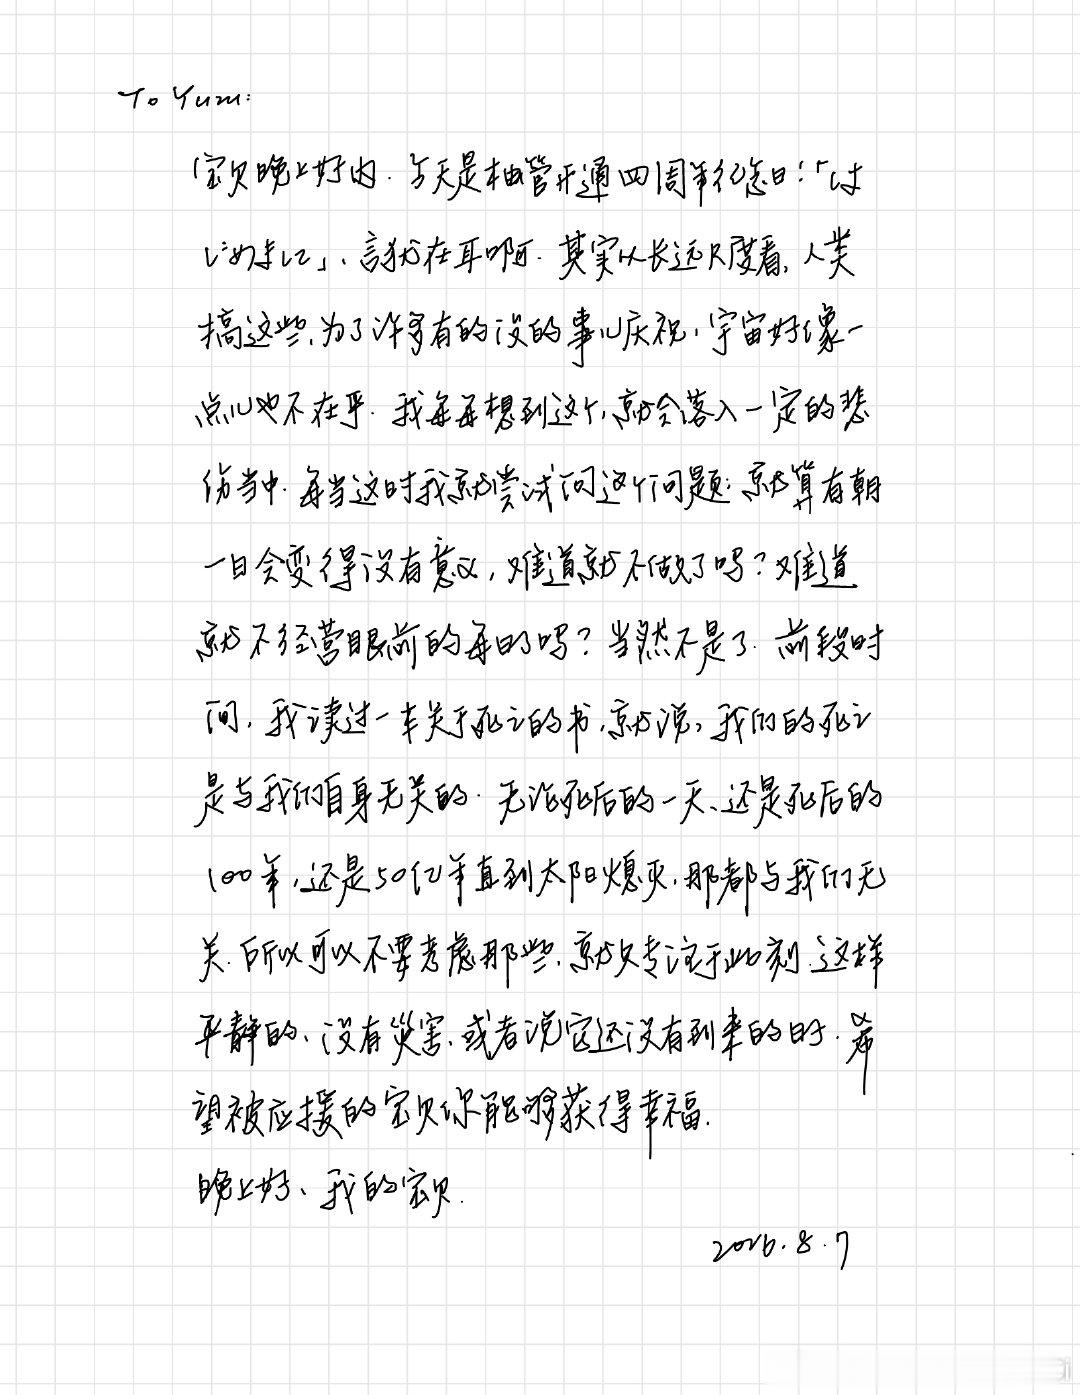 To Yumi:
宝贝晚上好内. 今天是柚管开通四周年纪念日!「は
じめまして」、言犹在耳啊. 其实从长远尺度看, 人类
搞这些、为了许多有的没的事儿庆祝, 宇宙好像一
点儿也不在乎. 我每每想到这个, 就会落入一定的悲
伤当中. 每当这时我就尝试问这个问题: 就算有朝
一日会变得没有意义, 难道就不做了吗? 难道
就不经营眼前的每日了吗? 当然不是了. 前段时
间, 我读过一本关于死亡的书, 就说, 我们的死亡
是与我们自身无关的. 无论死后的一天、还是死后的
100年, 还是50亿年直到太阳熄灭, 那都与我们无
关. 所以可以不要考虑那些, 就只专注于此刻. 这样
平静的、没有災害、或者说它还没有到来的时. 希
望被应援的宝贝你能够获得幸福.
晚上好、我的宝贝.
2026.8.7